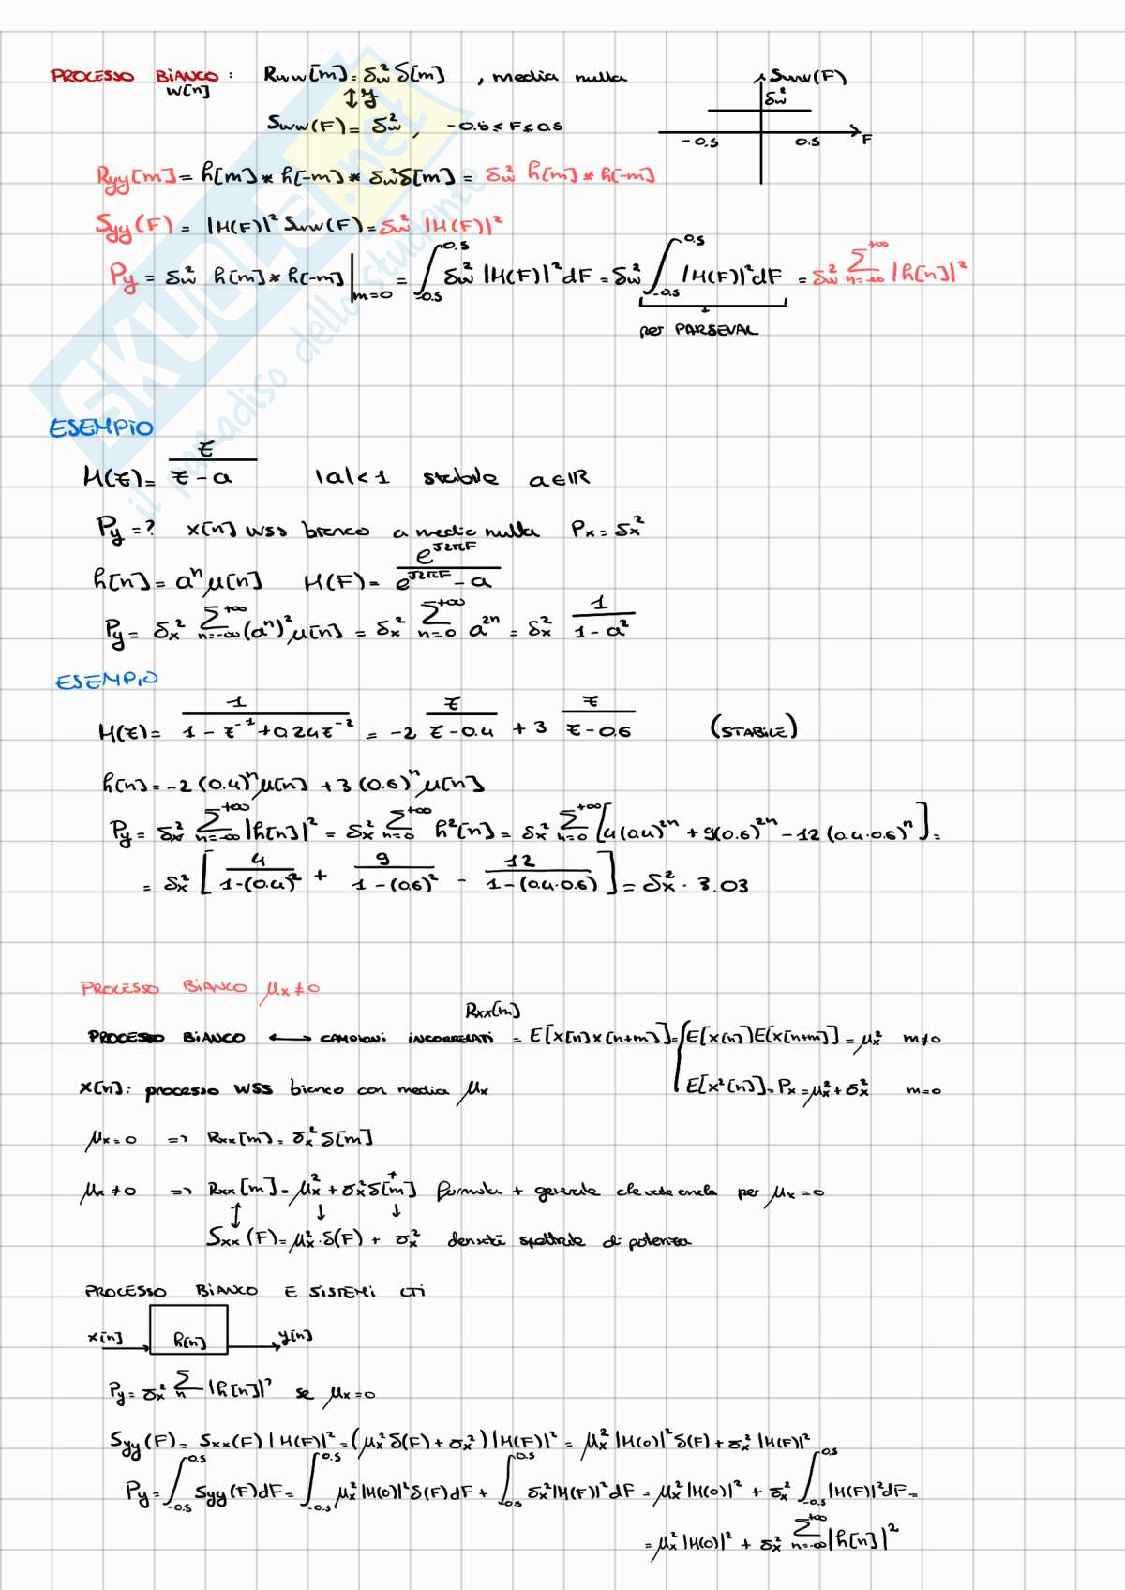 PROCESSO BIANCO : Rww[m] = δw² δ[m] , media nulla
w[n]
↕ℱ
Sww(F) = δw² , -0.5 ≤ F ≤ 0.5
Sww(F)
δw²
-0.5 0.5 F
Ryy[m] = h[m] * h[-m] * δw² δ[m] = δw² h[m] * h[-m]
Syy(F) = |H(F)|² Sww(F) = δw² |H(F)|²
Py = δw² h[m] * h[-m] |m=0 = ∫_{-0.5}^{0.5} δw² |H(F)|² dF = δw² ∫_{-0.5}^{0.5} |H(F)|² dF = δw² Σ_{n=-∞}^{+∞} |h[n]|²
per PARSEVAL
SKUOLA.net
il paradiso dello studente
ESEMPIO
H(z) = z/(z - a) |a| < 1 stabile a∈ℝ
Py = ? x[n] WSS bianco a media nulla Px = δx²
h[n] = aⁿ μ[n] H(F) = e^{J2πF}/(e^{J2πF} - a)
Py = δx² Σ_{n=-∞}^{+∞} (aⁿ)² μ[n] = δx² Σ_{n=0}^{+∞} a²ⁿ = δx² 1/(1 - a²)
ESEMPIO
H(z) = 1/(1 - z⁻¹ + 0.24z⁻²) = -2 z/(z - 0.4) + 3 z/(z - 0.6) (STABILE)
h[n] = -2 (0.4)ⁿ μ[n] + 3 (0.6)ⁿ μ[n]
Py = δx² Σ_{n=-∞}^{+∞} |h[n]|² = δx² Σ_{n=0}^{+∞} h²[n] = δx² Σ_{n=0}^{+∞} [4(0.4)²ⁿ + 9(0.6)²ⁿ - 12 (0.4·0.6)ⁿ] =
= δx² [4/(1-(0.4)²) + 9/(1-(0.6)²) - 12/(1-(0.4·0.6))] = δx² · 3.03
PROCESSO BIANCO μx≠0
Rxx[m]
PROCESSO BIANCO ⟷ CAMPIONI INCORRELATI = E[x[n]x[n+m]] = { E[x[n]]E[x[n+m]] = μx² m≠0
E[x²[n]] = Px = μx² + σx² m=0
x[n] : processo WSS bianco con media μx
μx = 0 => Rxx[m] = σx² δ[m]
μx ≠ 0 => Rxx[m] = μx² + σx² δ[m] formula + generale che vale anche per μx = 0
↕ ↓ ↓
Sxx(F) = μx²·δ(F) + σx² densità spettrale di potenza
PROCESSO BIANCO E SISTEMI LTI
x[n] h[n] y[n]
Py = σx² Σ_n |h[n]|² se μx = 0
Syy(F) = Sxx(F) |H(F)|² = (μx² δ(F) + σx²) |H(F)|² = μx² |H(0)|² δ(F) + σx² |H(F)|²
Py = ∫_{-0.5}^{0.5} Syy(F)dF = ∫_{-0.5}^{0.5} μx² |H(0)|² δ(F)dF + ∫_{-0.5}^{0.5} δx² |H(F)|² dF = μx² |H(0)|² + σx² ∫_{-0.5}^{0.5} |H(F)|² dF =
= μx² |H(0)|² + σx² Σ_{n=-∞}^{+∞} |h[n]|²